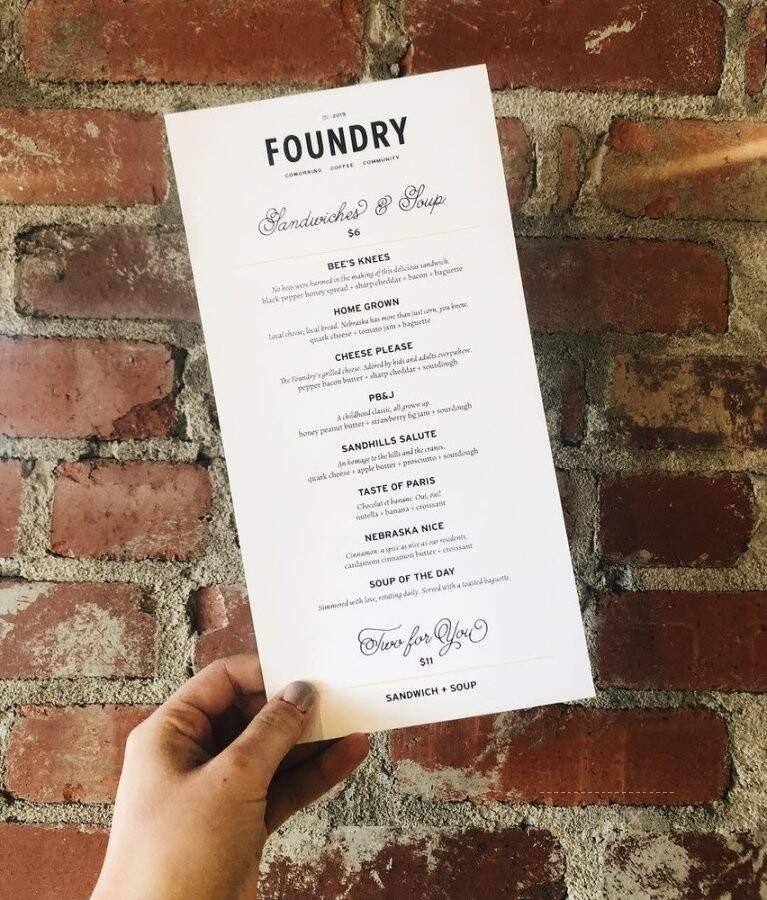 EST. 2019
FOUNDRY
COWORKING COFFEE COMMUNITY
Sandwiches & Soup
$6
BEE'S KNEES
No bees were harmed in the making of this delicious sandwich.
black pepper honey spread + sharp cheddar + bacon + baguette
HOME GROWN
Local cheese, local bread. Nebraska has more than just corn, you know.
quark cheese + tomato jam + baguette
CHEESE PLEASE
The Foundry's grilled cheese. Adored by kids and adults everywhere.
pepper bacon butter + sharp cheddar + sourdough
PB&J
A childhood classic, all grown up.
honey peanut butter + strawberry fig jam + sourdough
SANDHILLS SALUTE
An homage to the hills and the cranes.
quark cheese + apple butter + prosciutto + sourdough
TASTE OF PARIS
Chocolat et banane. Oui, oui!
nutella + banana + croissant
NEBRASKA NICE
Cinnamon: a spice as nice as our residents.
cardamom cinnamon butter + croissant
SOUP OF THE DAY
Simmered with love, rotating daily. Served with a toasted baguette.
Two for You
$11
SANDWICH + SOUP